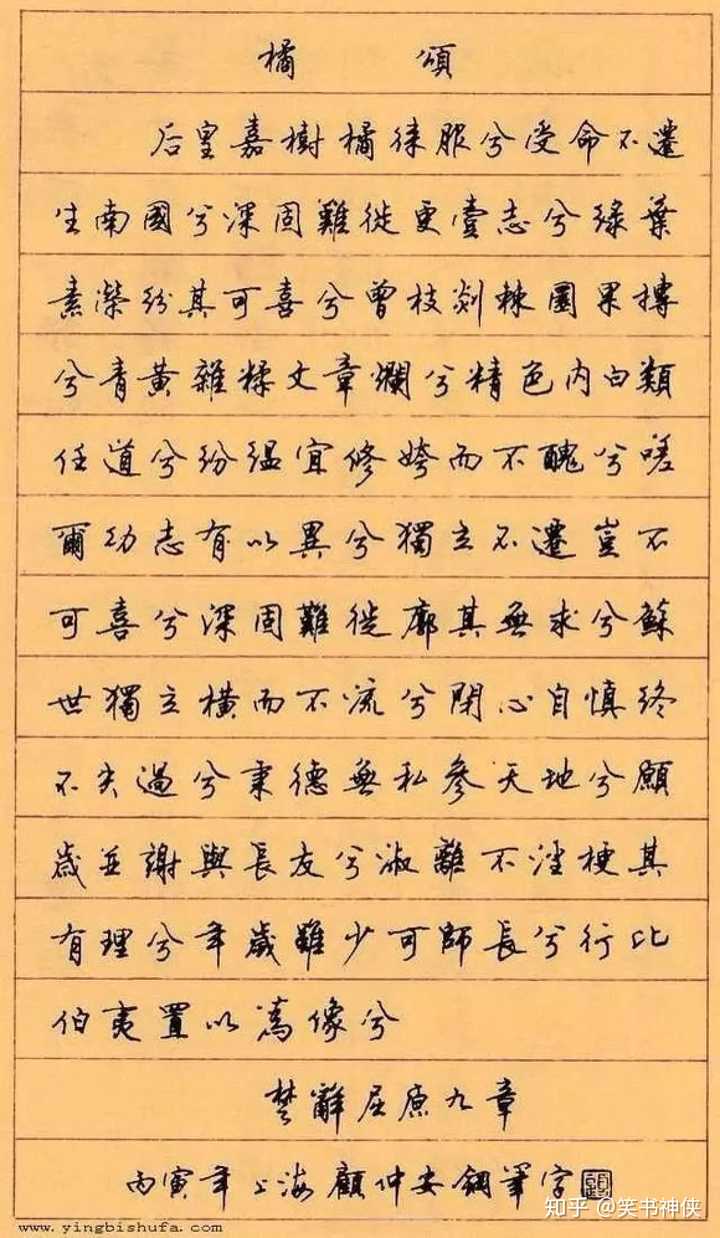 橘頌
后皇嘉樹橘徠服兮受命不遷
生南國兮深固難徙更壹志兮綠葉
素榮紛其可喜兮曾枝剡棘圜果摶
兮青黃雜糅文章爛兮精色內白類
任道兮紛緼宜修姱而不醜兮嗟
爾幼志有以異兮獨立不遷豈不
可喜兮深固難徙廓其無求兮蘇
世獨立橫而不流兮閉心自慎終
不失過兮秉德無私參天地兮願
歲並謝與長友兮淑離不淫梗其
有理兮年歲雖少可師長兮行比
伯夷置以為像兮
楚辭屈原九章
丙寅年上海顧仲安鋼筆字
知乎 @笑书神侠
www.yingbishufa.com